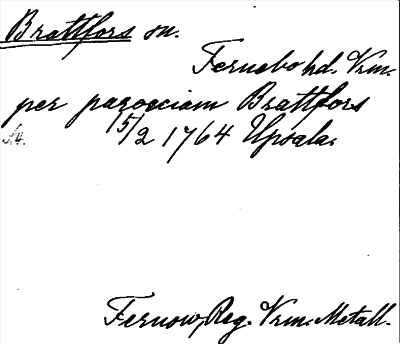 Brattfors sn.
Fernebo hd. Vrm.
per paroeciam Brattfors
15/2 1764 Upsala.
Fernow, Reg. Vrm. Metall.